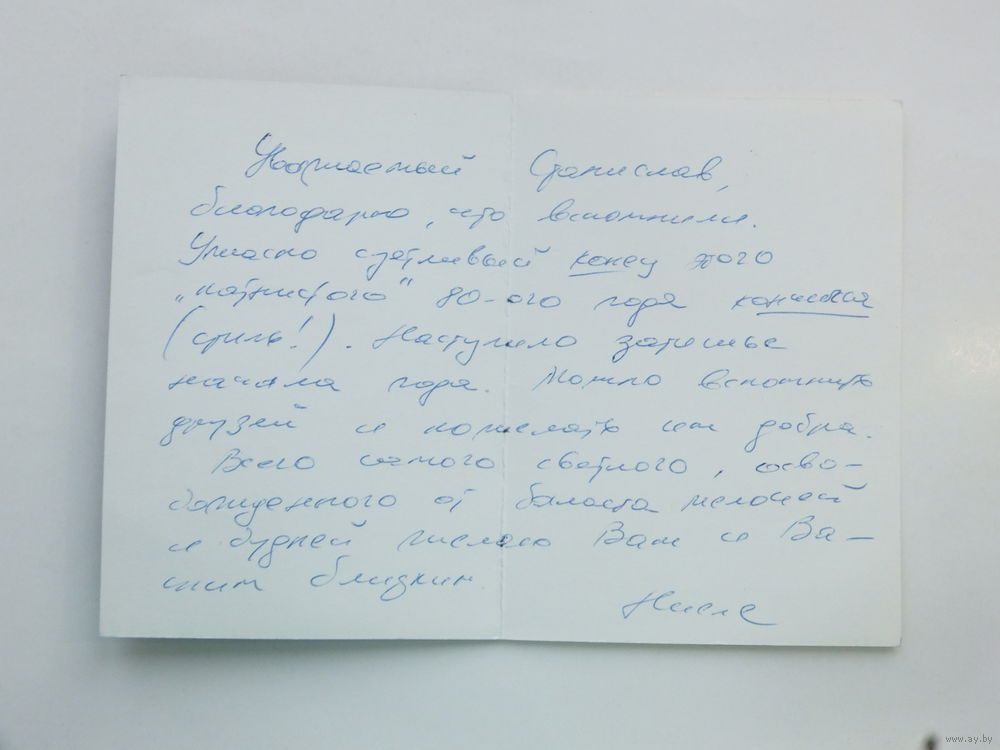 Уважаемый Станислав,
благодарю, что вспомнили.
Ужасно суетливый конец этого
80-ого года кончился
(стиль!). Наступило затишье
начала года. Можно вспомнить
друзей и пожелать им добра.
Всего самого светлого, осво-
божденного от баласта мелочей
и будней желаю Вам и Ва-
шим близким.
www.ay.by